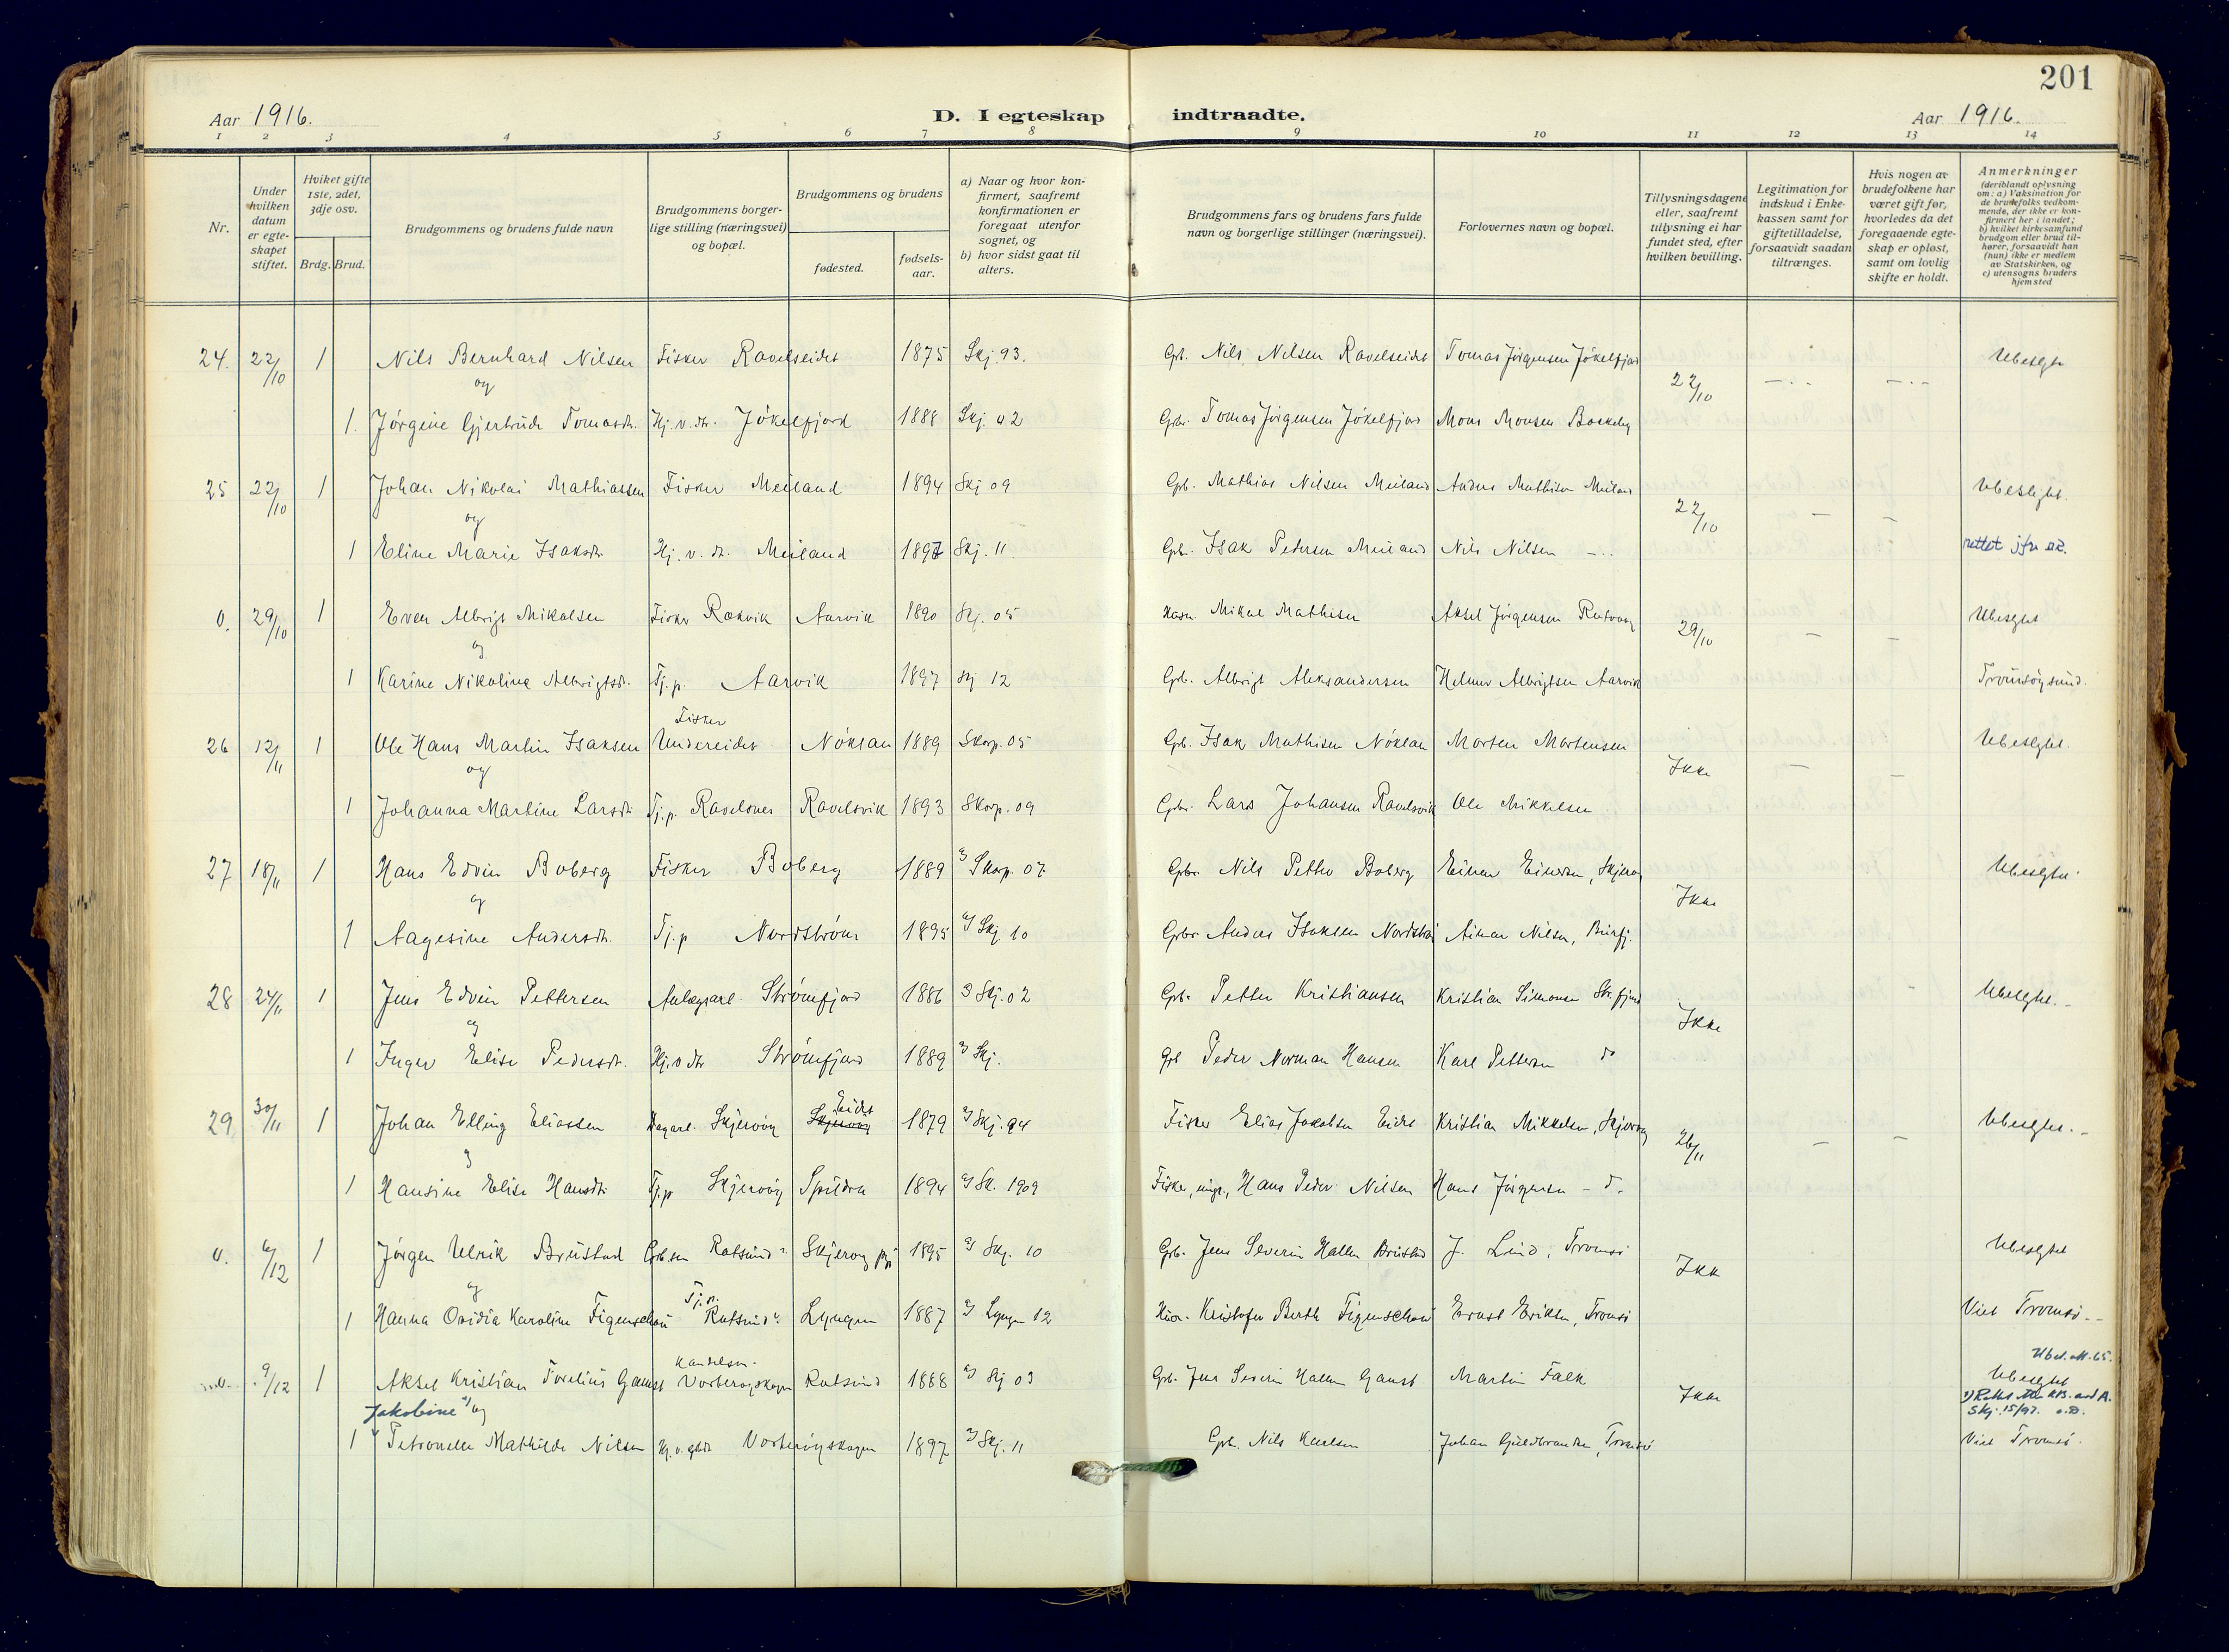 201
Aar 1916. D. I egteskap indtraadte. Aar 1916.
1 2 3 4 5 6 7 8 9 10 11 12 13 14
Nr.
Under hvilken datum er egte-skapet stiftet.
Hvilket gifte 1ste, 2det, 3dje osv.
Brdg. Brud.
Brudgommens og brudens fulde navn
Brudgommens borger-lige stilling (næringsvei) og bopæl.
Brudgommens og brudens
fødested.
fødsels-aar.
a) Naar og hvor kon-firmert, saafremt konfirmationen er foregaat utenfor sognet, og
b) hvor sidst gaat til alters.
Brudgommens fars og brudens fars fulde navn og borgerlige stillinger (næringsvei).
Forlovernes navn og bopæl.
Tillysningsdagene eller, saafremt tillysning ei har fundet sted, efter hvilken bevilling.
Legitimation for indskud i Enke-kassen samt for giftetilladelse, forsaavidt saadan tiltrænges.
Hvis nogen av brudefolkene har været gift før, hvorledes da det foregaaende egte-skap er opløst, samt om lovlig skifte er holdt.
Anmerkninger
(deriblandt oplysning om: a) Vaksination for de brudefolks vedkom-mende, der ikke er kon-firmert her i landet; b) hvilket kirkesamfund brudgom eller brud til-hører, forsaavidt han (hun) ikke er medlem av Statskirken, og c) utensogns bruders hjemsted
24. 22/10 1 Nils Bernhard Nilsen Fisker Ravelseidet 1875 Skj. 93. Gb. Nils Nilsen Ravelseidet Tomas Jörgensen Jökelfjord 22/10 Ubeslgt
og
1. Jörgine Gjertrude Tomasdt. Hj. v. dtr. Jökelfjord 1888 Skj. 02 Gbr. Tomas Jörgensen Jökelfjord Mons Monsen
25 22/10 1 Johan Nikolai Mathiassen Fisker Meiland 1894 Skj 09 Gb. Mathias Nilsen Meiland Anders Mathisen Meiland 22/10 Ubeslgtet.
og
1 Eline Marie Isaksdtr. Hj. v. dt. Meiland 1897 Skj. 11 Gb. Isak Petersen Meiland Nils Nilsen rettet jfr
0. 29/10 1 Even Albrigt Mikalsen Fisker Rakvik Aarvik 1890 Skj. 05 Mikal Mathisen Aksel Jörgensen 29/10 Ubeslgtet
og
1 Karine Nikoline Albrigtsdt. Tj. p. Aarvik 1897 Skj 12 Gb. Albrigt Aleksandersen Helmer Albrigtsen Aarvik Tromsöysund.
Fisker
26 12/11 1 Ole Hans Martin Isaksen Undereidet Nöklan 1889 Skorp. 05 Gb. Isak Mathisen Nöklan Morten Mortensen Ikke Ubeslgtet.
og
1 Johanna Martine Larsdt. Tj. p. Ravelsnes Ravelsvik 1893 Skorp. 09 Gbr. Lars Johansen Ravelsvik Ole Mikkelsen
27 18/11 1 Hans Edvin Boberg Fisker Boberg 1889 a) Skorp. 07 Gbr. Nils Petter Boberg Einar Einersen, Skjervöy Ikke Ubeslgtet
og
1 Aagesine Andersdt. Tj. p Nordström 1895 a) Skj. 10 Gbr. Anders Isaksen Nordström Nilsen, Burfj.
28 24/11 1 Jens Edvin Pettersen Anlegsarb. Strömfjord 1886 a) Skj. 02 Gb. Petter Kristiansen Kristian Simonsen Str.fjord Ikke Ubeslgtet.
og
1 Inger Elise Pedersdt. Hj. v dtr Strömfjord 1889 a) Skj. Gb Peder Norman Hansen Karl Pettersen do
29 30/11 1 Johan Elling Eliassen Skjervöy Eidet Skjervöy 1879 a) Skj. 94 Fisker Elias Jakobsen Eidet Kristian Mikkelsen, Skjervöy 26/11 Ubeslgtet.
og
1 Hansine Elise Hansdt. Tj. p Skjervöy Spildra 1894 a) Sk. 1909 Fisker, Hans Peder Nilsen Hans Jörgensen – d.
0. 6/12 1 Jörgen Ulrik Brustad Gb.sön Rotsund Skjervöy 1895 a) Skj. 10 Gb. Jens Severin Hallen Brustad J. Lind, Tromsö Ikke Ubeslgtet
og Tj. p.
1 Hanna Ovidia Karoline Figenschou Rotsund Lyngen 1887 a) Lyngen 12 Kristofer Berth Figenschou Ernst Eriksen, Tromsö Viet Tromsö.
Handelsm.
0. 9/12 1 Aksel Kristian Torelius Gamst Vorteröyskagen Rotsund 1888 a) Skj 03 Gb. Jens Severin Hallen Gamst Martin Falk Ikke Ubeslgtet
Jakobine 1) og
1) Rettet Skj. 15/97.
1 Petronelle Mathilde Nilsen Hj. v. Vorteröyskagen 1897 a) Skj. 11 Gb. Nils Karlsen Johan Guldbrandsen, Tromsö Viet Tromsö.